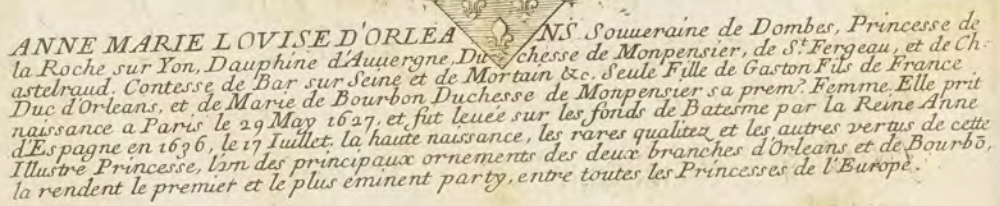 ANNE MARIE LOVISE D'ORLEANS. Souueraine de Dombes, Princesse de
la Roche sur Yon, Dauphine d'Auuergne, Duchesse de Monpensier, de St. Fergeau, et de Ch-
astelraud. Contesse de Bar sur Seine et de Mortain &c. Seule Fille de Gaston Fils de France
Duc d'Orleans, et de Marie de Bourbon Duchesse de Monpensier sa premr. Femme. Elle prit
naissance a Paris le 29 May 1627, et fut leuée sur les fonds de Batesme par la Reine Anne
d'Espagne en 1636, le 17 Iuillet. la haute naissance, les rares qualitez et les autres vertus de cette
Illustre Princesse, l'vn des principaux ornements des deux branches d'Orleans et de Bourbõ,
la rendent le premier et le plus eminent party, entre toutes les Princesses de l'Europe.